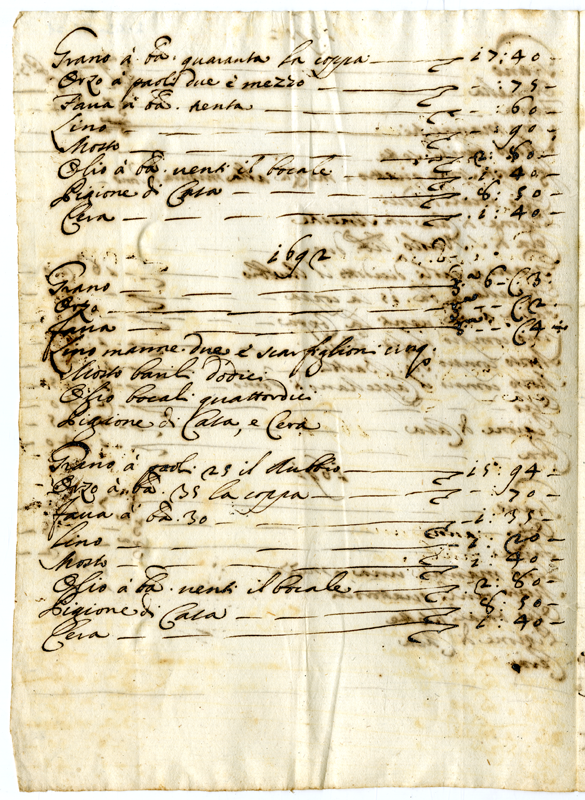 Grano à bā. quaranta la coppa — 17:40 —
Orzo à paoli due è mezzo — :75 —
Faua à bā. trenta — :60 —
Lino — :90 —
Mosto — 2:80 —
Olio à bā. uenti il bocale — 1:40 —
Pigione di Casa — 8:50 —
Cera — 1:40 —
1692
Grano — 6 — C 3
Orzo — C 2
Faua — C 4
Lino manne due è scarfiglioni
Mosto barili dodici
Olio bocali quattordici
Pigione di Casa, e Cera
Grano à paoli 25 il Rubbio — 15:94 —
Orzo à bā. 35 la coppa — :70 —
Faua à bā. 30 — 1:35 —
Lino — 1:20 —
Mosto — 1:40 —
Olio à bā uenti il bocale — 2:80 —
Pigione di Casa — 8:50 —
Cera — 1:40 —